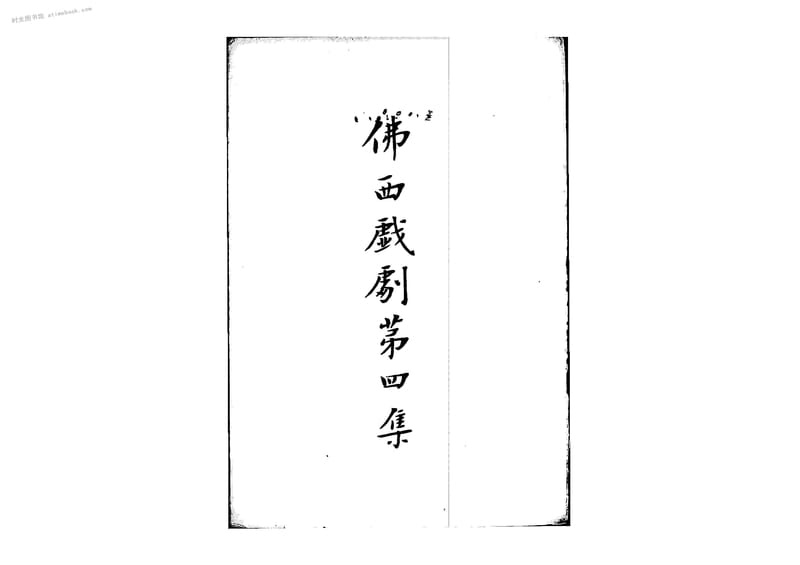 时光图书馆 etimebook.com
佛西戲劇第四集